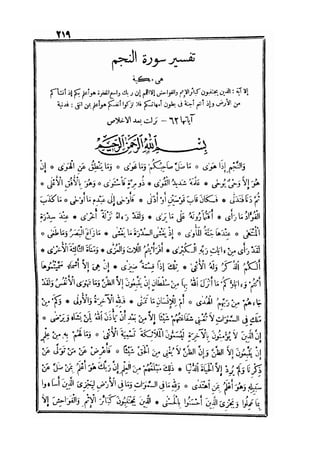 ٢١٩
تفسير سورة النجم
هي مكية
إلا آية : الذين يجتنبون كبائر الإثم والفواحش إلا اللمم إن ربك واسع المغفرة هو أعلم بكم إذ أنشأكم
من الأرض وإذ أنتم أجنة في بطون أمهاتكم فلا تزكوا أنفسكم هو أعلم بمن اتقى : فمدنية
آياتها ٦٢ - نزلت بعد الإخلاص
بِسْمِ اللَّهِ الرَّحْمَنِ الرَّحِيمِ
وَالنَّجْمِ إِذَا هَوَى • مَا ضَلَّ صَاحِبُكُمْ وَمَا غَوَى • وَمَا يَنْطِقُ عَنِ الْهَوَى • إِنْ
هُوَ إِلَّا وَحْيٌ يُوحَى • عَلَّمَهُ شَدِيدُ الْقُوَى • ذُو مِرَّةٍ فَاسْتَوَى • وَهُوَ بِالْأُفُقِ الْأَعْلَى •
ثُمَّ دَنَا فَتَدَلَّى • فَكَانَ قَابَ قَوْسَيْنِ أَوْ أَدْنَى • فَأَوْحَى إِلَى عَبْدِهِ مَا أَوْحَى • مَا كَذَبَ
الْفُؤَادُ مَا رَأَى • أَفَتُمَارُونَهُ عَلَى مَا يَرَى • وَلَقَدْ رَءَاهُ نَزْلَةً أُخْرَى • عِنْدَ سِدْرَةِ
الْمُنْتَهَى • عِنْدَهَا جَنَّةُ الْمَأْوَى • إِذْ يَغْشَى السِّدْرَةَ مَا يَغْشَى • مَا زَاغَ الْبَصَرُ وَمَا طَغَى •
لَقَدْ رَأَى مِنْ ءَايَاتِ رَبِّهِ الْكُبْرَى • أَفَرَأَيْتُمُ اللَّاتَ وَالْعُزَّى • وَمَنَاةَ الثَّالِثَةَ الْأُخْرَى •
أَلَكُمُ الذَّكَرُ وَلَهُ الْأُنْثَى • تِلْكَ إِذًا قِسْمَةٌ ضِيزَى • إِنْ هِيَ إِلَّا أَسْمَاءٌ سَمَّيْتُمُوهَا
أَنْتُمْ وَءَابَاؤُكُمْ مَا أَنْزَلَ اللَّهُ بِهَا مِنْ سُلْطَانٍ إِنْ يَتَّبِعُونَ إِلَّا الظَّنَّ وَمَا تَهْوَى الْأَنْفُسُ وَلَقَدْ
جَاءَهُمْ مِنْ رَبِّهِمُ الْهُدَى • أَمْ لِلْإِنْسَانِ مَا تَمَنَّى • فَلِلَّهِ الْآخِرَةُ وَالْأُولَى • وَكَمْ مِنْ
مَلَكٍ فِي السَّمَوَاتِ لَا تُغْنِي شَفَاعَتُهُمْ شَيْئًا إِلَّا مِنْ بَعْدِ أَنْ يَأْذَنَ اللَّهُ لِمَنْ يَشَاءُ وَيَرْضَى •
إِنَّ الَّذِينَ لَا يُؤْمِنُونَ بِالْآخِرَةِ لَيُسَمُّونَ الْمَلَائِكَةَ تَسْمِيَةَ الْأُنْثَى • وَمَا لَهُمْ بِهِ مِنْ عِلْمٍ
إِنْ يَتَّبِعُونَ إِلَّا الظَّنَّ وَإِنَّ الظَّنَّ لَا يُغْنِي مِنَ الْحَقِّ شَيْئًا • فَأَعْرِضْ عَنْ مَنْ تَوَلَّى عَنْ
ذِكْرِنَا وَلَمْ يُرِدْ إِلَّا الْحَيَاةَ الدُّنْيَا • ذَلِكَ مَبْلَغُهُمْ مِنَ الْعِلْمِ إِنَّ رَبَّكَ هُوَ أَعْلَمُ بِمَنْ ضَلَّ عَنْ
سَبِيلِهِ وَهُوَ أَعْلَمُ بِمَنِ اهْتَدَى • وَلِلَّهِ مَا فِي السَّمَوَاتِ وَمَا فِي الْأَرْضِ لِيَجْزِيَ الَّذِينَ أَسَاءُوا
بِمَا عَمِلُوا وَيَجْزِيَ الَّذِينَ أَحْسَنُوا بِالْحُسْنَى • الَّذِينَ يَجْتَنِبُونَ كَبَائِرَ الْإِثْمِ وَالْفَوَاحِشَ إِلَّا